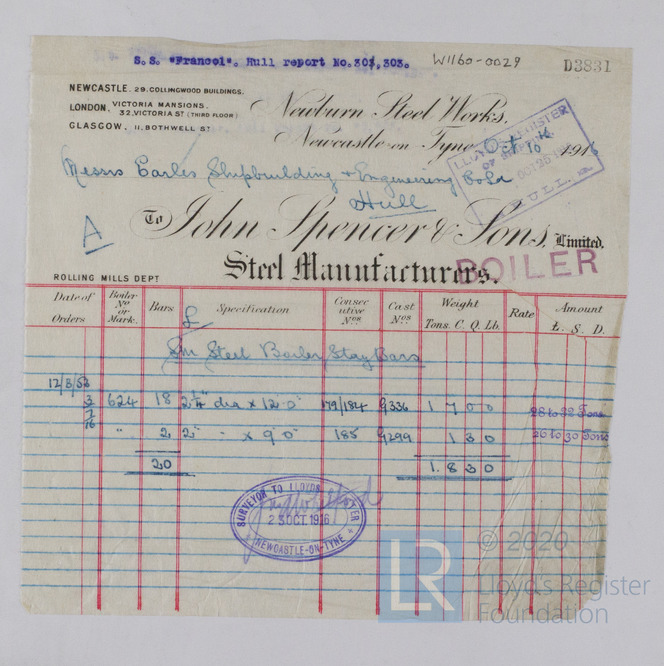 S.S. "Francol". Hull report No.302,303.
W1160-0029
D3831
NEWCASTLE. 29. COLLINGWOOD BUILDINGS.
LONDON. VICTORIA MANSIONS. 32, VICTORIA ST (THIRD FLOOR)
GLASGOW. 11, BOTHWELL ST
Newburn Steel Works,
Newcastle-on-Tyne, Oct 16 1916
LLOYD'S REGISTER
HULL
Messrs Earles Shipbuilding & Engineering Co Ld
Hull
A
To John Spencer & Sons, Limited.
Steel Manufacturers.
BOILER
ROLLING MILLS DEPT
Date of Orders Boiler No or Mark. Bars Specification Consecutive Nos Cast Nos Weight Tons. C. Q. Lb. Rate Amount £. S. D.
£
Sm Steel Boiler Stay Bars
3/7/16 624 18 2¼" dia x 12.0" 179/184 9336 1 7 0 0 28 to 32 Tons
" 2 2" " x 9 0" 185 9299 1 3 0 26 to 30 Tons
20 1. 8 3 0
SURVEYOR TO LLOYDS
23 OCT. 1916
NEWCASTLE-ON-TYNE
LR
© 2020
Lloyd's Register
Foundation